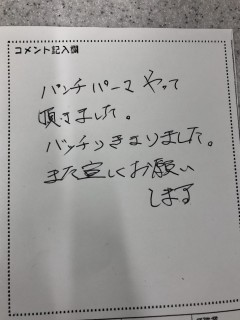 コメント記入欄
パンチパーマ やって
頂きました。
バッチリきまりました。
また宜しくお願い
します